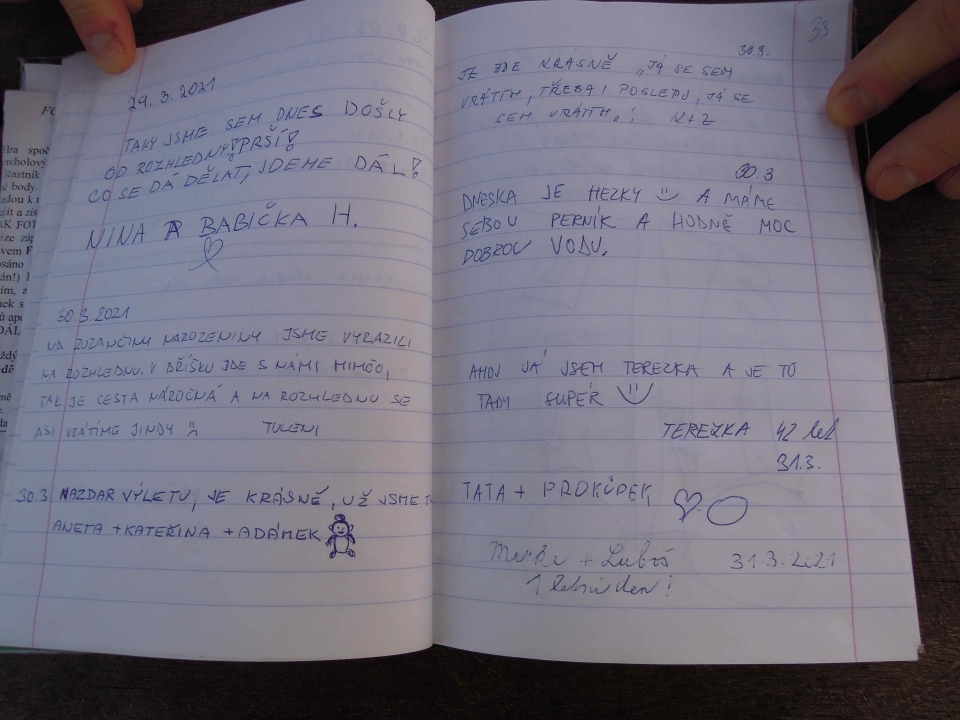 29. 3. 2021
TAKY JSME SEM DNES DOŠLY
OD ROZHLEDNY! PRŠÍ!
CO SE DÁ DĚLAT, JDEME DÁL!
NINA A BABIČKA H.
30.3.2021
NA ZUZANČINY NAROZENINY JSME VYRAZILI
NA ROZHLEDNU. V BŘÍŠKU JDE S NÁMI MIMČO,
TAK JE CESTA NÁROČNÁ A NA ROZHLEDNU SE
ASI VRÁTÍME JINDY TULENI
30.3 NAZDAR VÝLETU, JE KRÁSNĚ, UŽ JSME
ANETA + KATEŘINA + ADÁMEK
33
30.3.
JE ZDE KRÁSNĚ „JÁ SE SEM
VRÁTÍM, TŘEBA I POSLEPU, JÁ SE
SEM VRÁTÍM. N+Z
30.3
DNESKA JE HEZKY A MÁME
SEBOU PERNÍK A HODNĚ MOC
DOBROU VODU.
AHOJ JÁ JSEM TEREZKA A JE TŮ
TADY SUPÉR
TEREZKA 42 let
31.3.
TATA + PROKŮPEK
+ Luboš 31.3.2021
1 letní den!